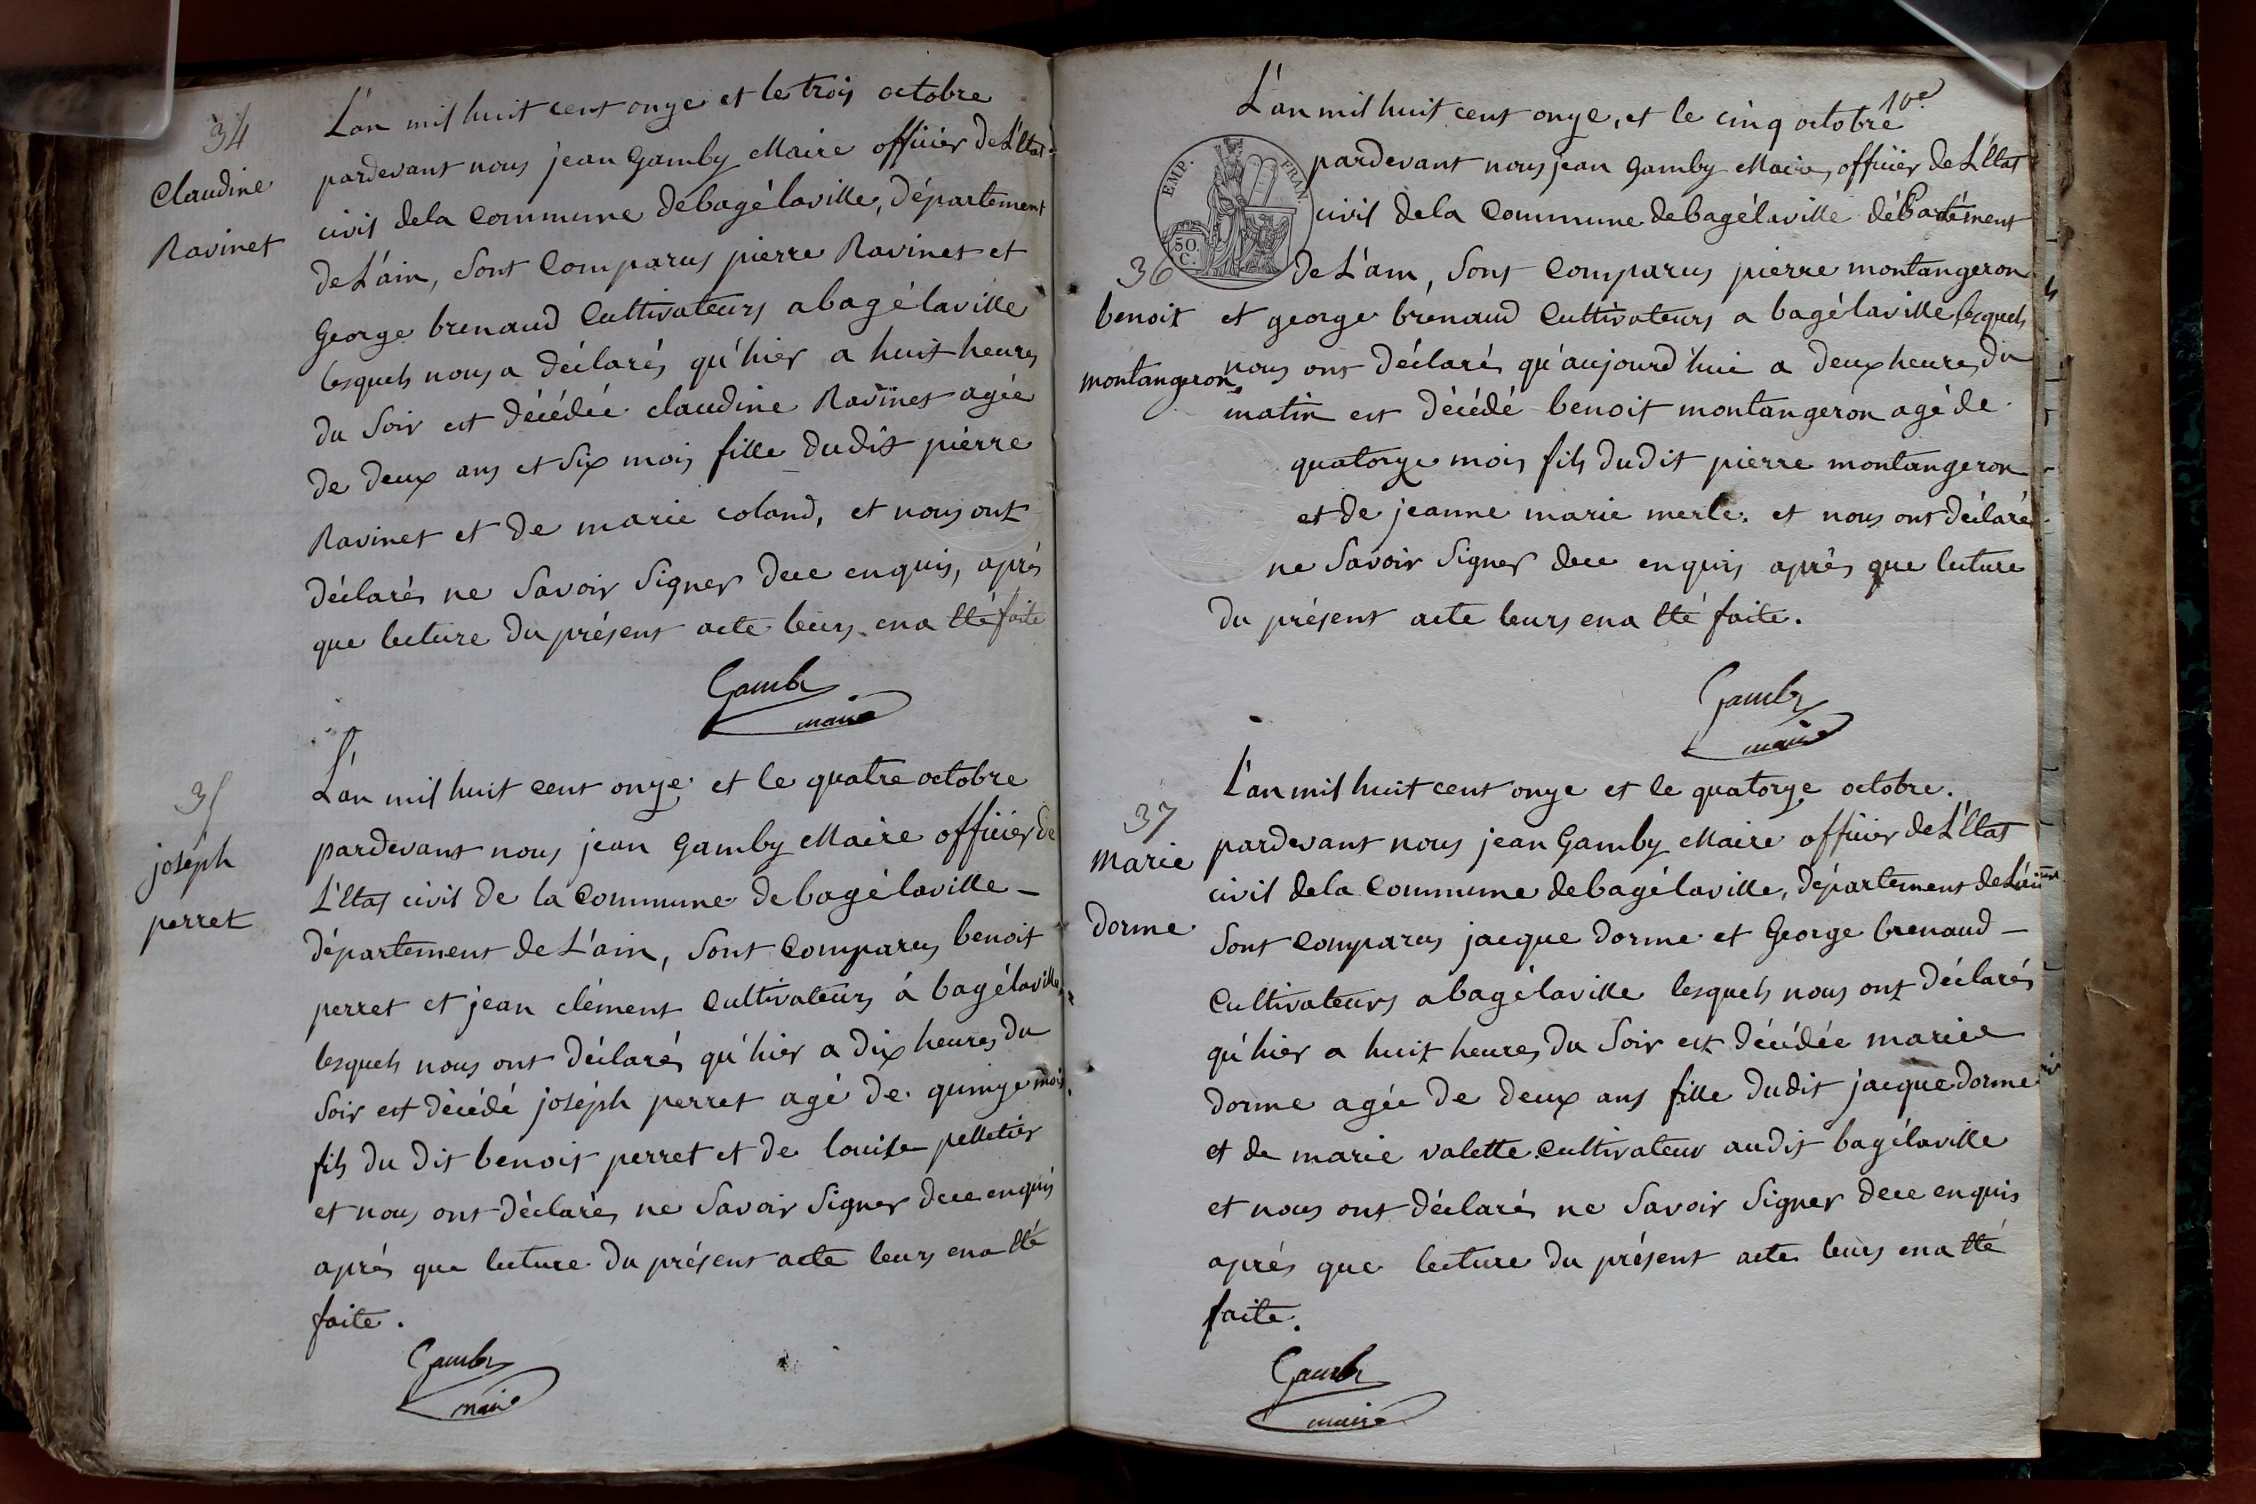 34
Claudine
Ravinet
L'an mil huit cent onze et le trois octobre
pardevant nous jean Gamby Maire officier de L'Etat
civil dela Commune debagélaville, département
de L'ain, sont Comparus pierre Ravinet et
George brenaud Cultivateurs a bagélaville
lesquels nous a déclarés qu'hier a huit heures
du soir est décédée claudine Ravinet agée
de deux ans et six mois fille dudit pierre
Ravinet et de marie coland, et nous ont
déclarés ne savoir signer dece enquis, aprés
que lecture du présent acte leurs ena été faite
Gamby
maire
35
joséph
perret
L'an mil huit cent onze et le quatre octobre
pardevant nous jean Gamby Maire officier de
L'Etat civil de la Commune debagélaville —
département de L'ain, sont Comparus benoit
perret et jean clément Cultivateurs á bagélaville
lesquels nous ont déclarés qu'hier a dix heures du
soir est décédé joséph perret agé de quinze mois
fils du dit benoit perret et de louise pelletier
et nous ont déclarés ne savoir signer dece enquis
aprés que lecture du présent acte leurs ena été
faite.
Gamby
maire
10e
L'an mil huit cent onze, et le cinq octobre
EMP. FRAN.
50
C.
pardevant nous jean Gamby Maire, officier de L'Etat
civil dela Commune debagélaville département
de L'ain, sont Comparus pierre montangeron
36
benoit
montangeron
et george brenaud Cultivateurs a bagélaville lesquels
nous ont déclarés qu'aujourd'hui a deux heures du
matin est décédé benoit montangeron agé de
quatorze mois fils dudit pierre montangeron
et de jeanne marie merle. et nous ont déclaré
ne savoir signer dece enquis aprés que lecture
du présent acte leurs ena été faite.
Gamby
maire
37
Marie
dorme
L'an mil huit cent onze et le quatorze octobre.
pardevant nous jean Gamby Maire officier de L'Etat
civil dela Commune debagélaville, département de L'ain
sont Comparus jacque dorme et George brenaud —
Cultivateurs abagélaville lesquels nous ont déclarés
qu'hier a huit heures du soir est décédée marie
dorme agée de deux ans fille dudit jacque dorme
et de marie valette cultivateur audit bagélaville
et nous ont déclarés ne savoir signer dece enquis
aprés que lecture du présent acte leurs ena été
faite.
Gamby
maire